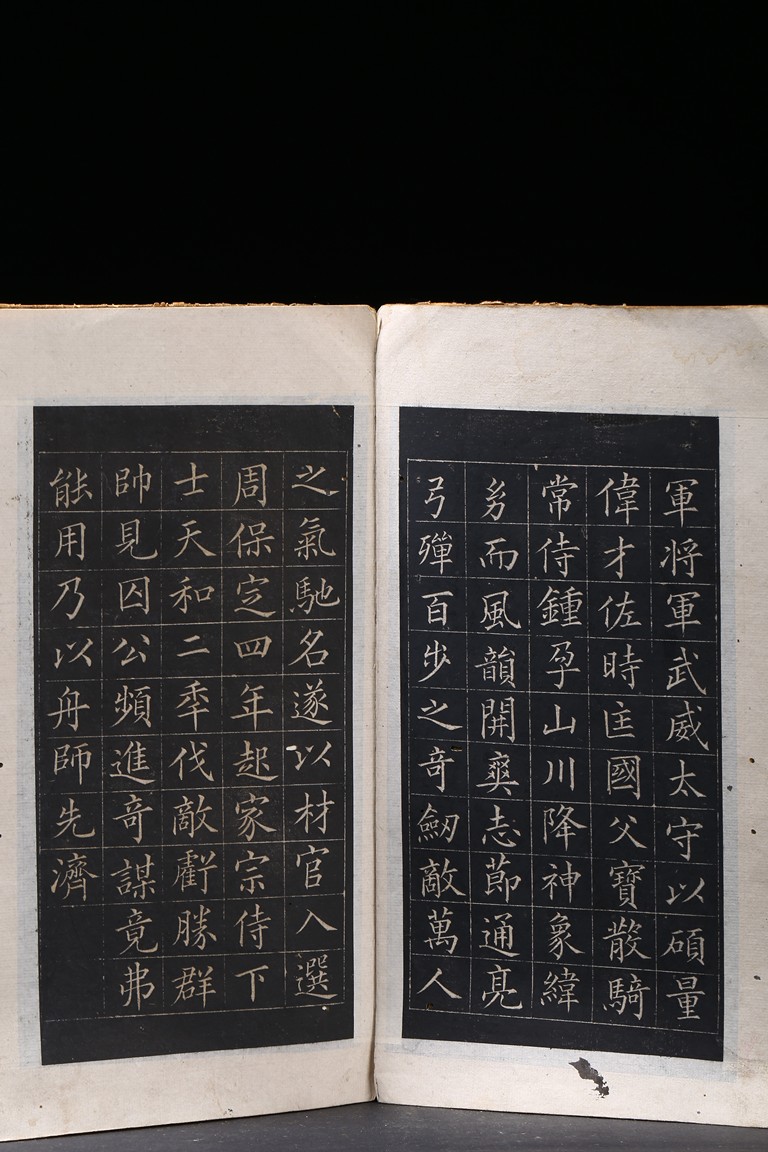 軍将軍武威太守以碩量
偉才佐時匡國父寶散騎
常侍鍾孕山川降神象緯
㓜而風韻開爽志節通亮
弓殫百步之奇劒敵萬人
之氣馳名遂以材官入選
周保定四年起家宗侍下
士天和二秊伐敵虧勝群
帥見囚公頻進奇謀竟弗
能用乃以舟師先濟